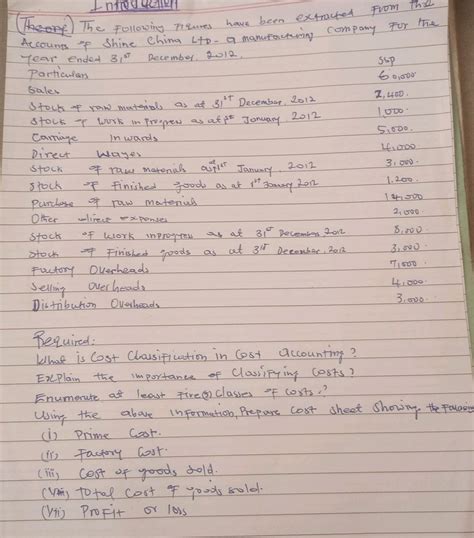 Introduction
(Theory) The following figures have been extracted from the
Accounts of Shine China Ltd - a manufacturing company for the
year ended 31st December, 2012.
Particulars SSP
Sales 60,000
Stock of raw materials as at 31st December, 2012 2,400.
Stock of work in progress as at 1st January 2012 1,000.
Carriage Inwards 5,000.
Direct Wages 4,000
Stock of raw materials as at 1st January, 2012 3,000.
Stock of finished goods as at 1st January 2012 1,200.
Purchase of raw materials 14,000
Other direct expenses 2,000.
Stock of work inprogress as at 31st December 2012 8,000
Stock of finished goods as at 31st December, 2012 3,000.
Factory Overheads 7,000
Selling Overheads 4,000.
Distribution Overheads 3,000.
Required:
What is Cost Classification in Cost accounting?
Explain the importance of classifying costs?
Enumerate at least five(5) classes of costs?
Using the above information, Prepare cost sheet showing the Following
(i) Prime Cost.
(ii) Factory Cost.
(iii) Cost of goods sold.
Total Cost of goods sold.
(vii) Profit or loss